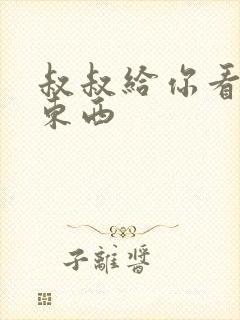 叔叔給你看
東西
子離醬